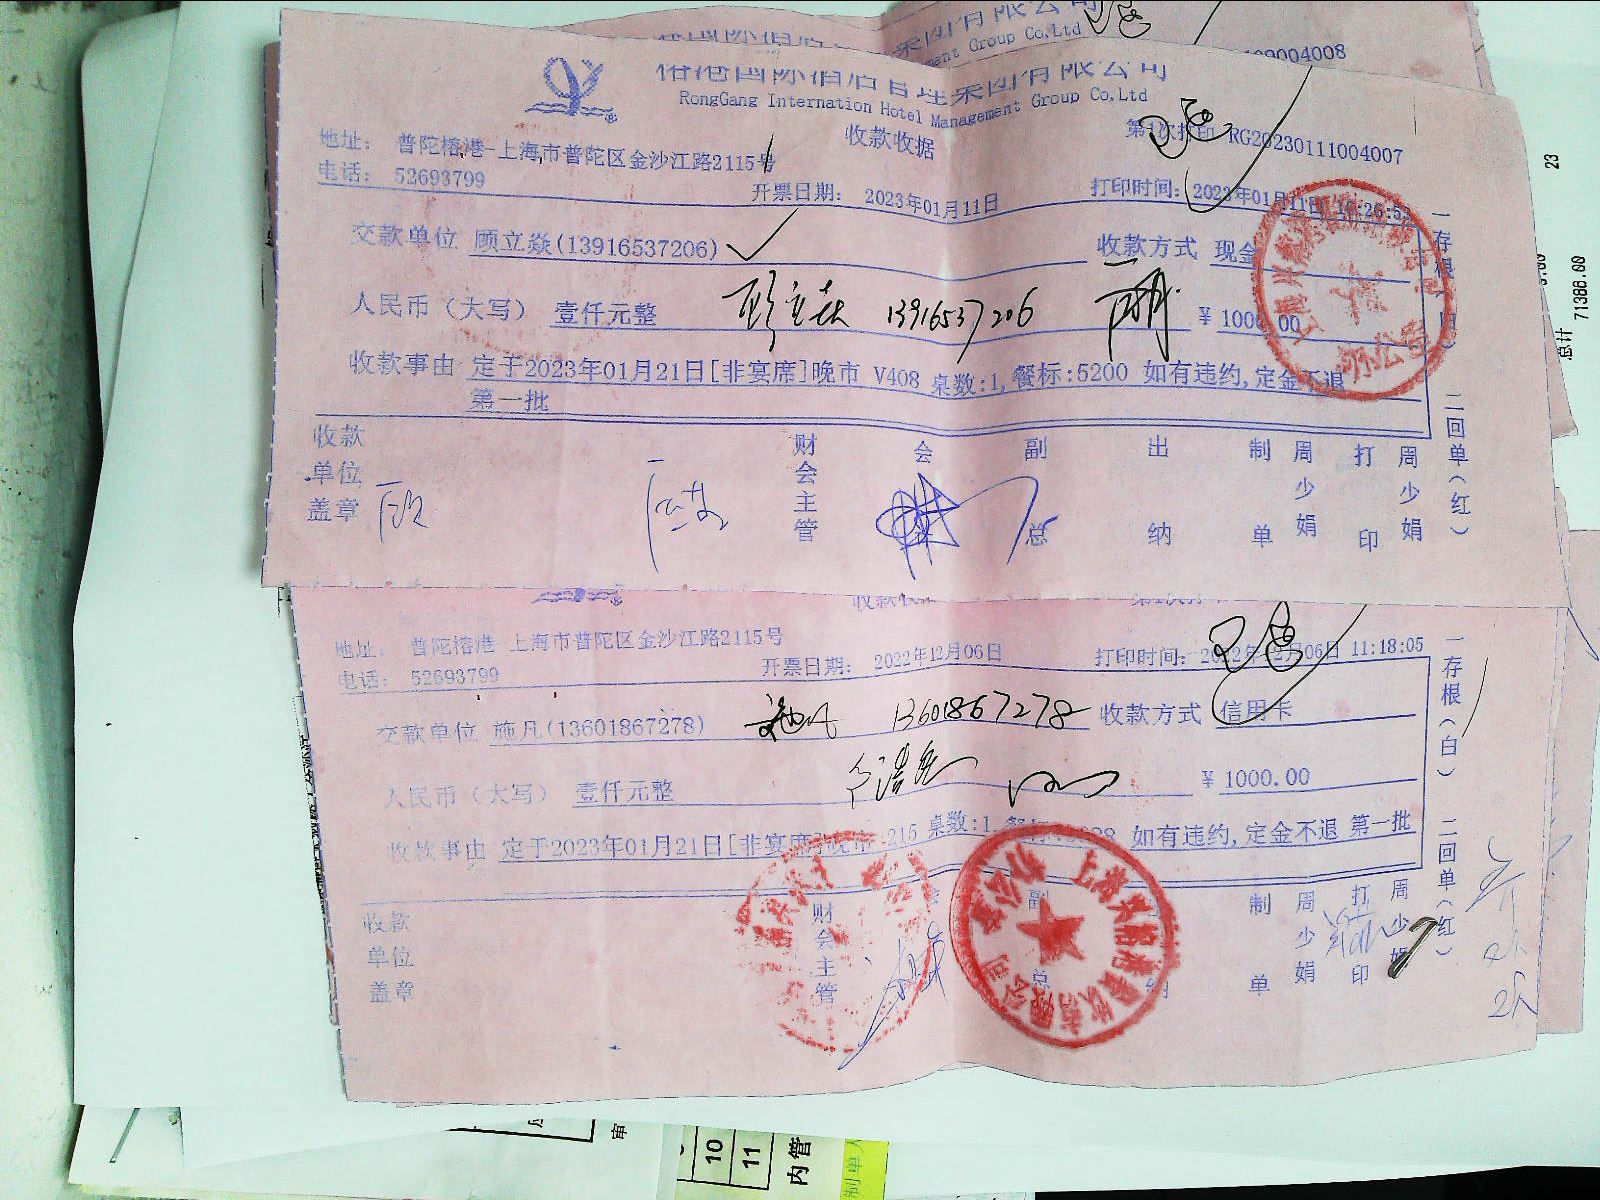 ment Group Co,Ltd
09004008
榕港国际酒店管理集团有限公司
RongGang Internation Hotel Management Group Co,Ltd
收款收据
第1次打印 RG20230111004007
地址: 普陀榕港-上海市普陀区金沙江路2115号
电话: 52693799
开票日期: 2023年01月11日
打印时间: 2023年01月11日
交款单位 顾立燚(13916537206)
收款方式 现金
人民币（大写） 壹仟元整
13916537206
¥ 1000.00
收款事由 定于2023年01月21日[非宴席]晚市 V408 桌数:1,餐标:5200 如有违约,定金不退
第一批
收款单位盖章
财会主管
会
副总
出纳
制单 周少娟
打印 周少娟
一存根
二回单(红)
办公室
地址: 普陀榕港-上海市普陀区金沙江路2115号
电话: 52693799
开票日期: 2022年12月06日
打印时间: 2022年12月06日 11:18:05
交款单位 施凡(13601867278)
施凡 13601867278
收款方式 信用卡
人民币（大写） 壹仟元整
¥ 1000.00
收款事由 定于2023年01月21日[非宴席]晚市 215 桌数:1 如有违约,定金不退 第一批
收款单位盖章
财会主管
会
副总
制单 周少娟
打印 周少娟
一存根(白)
二回单(红)
办公室
23
总计 71386.00
10
11
内管
制单人
审